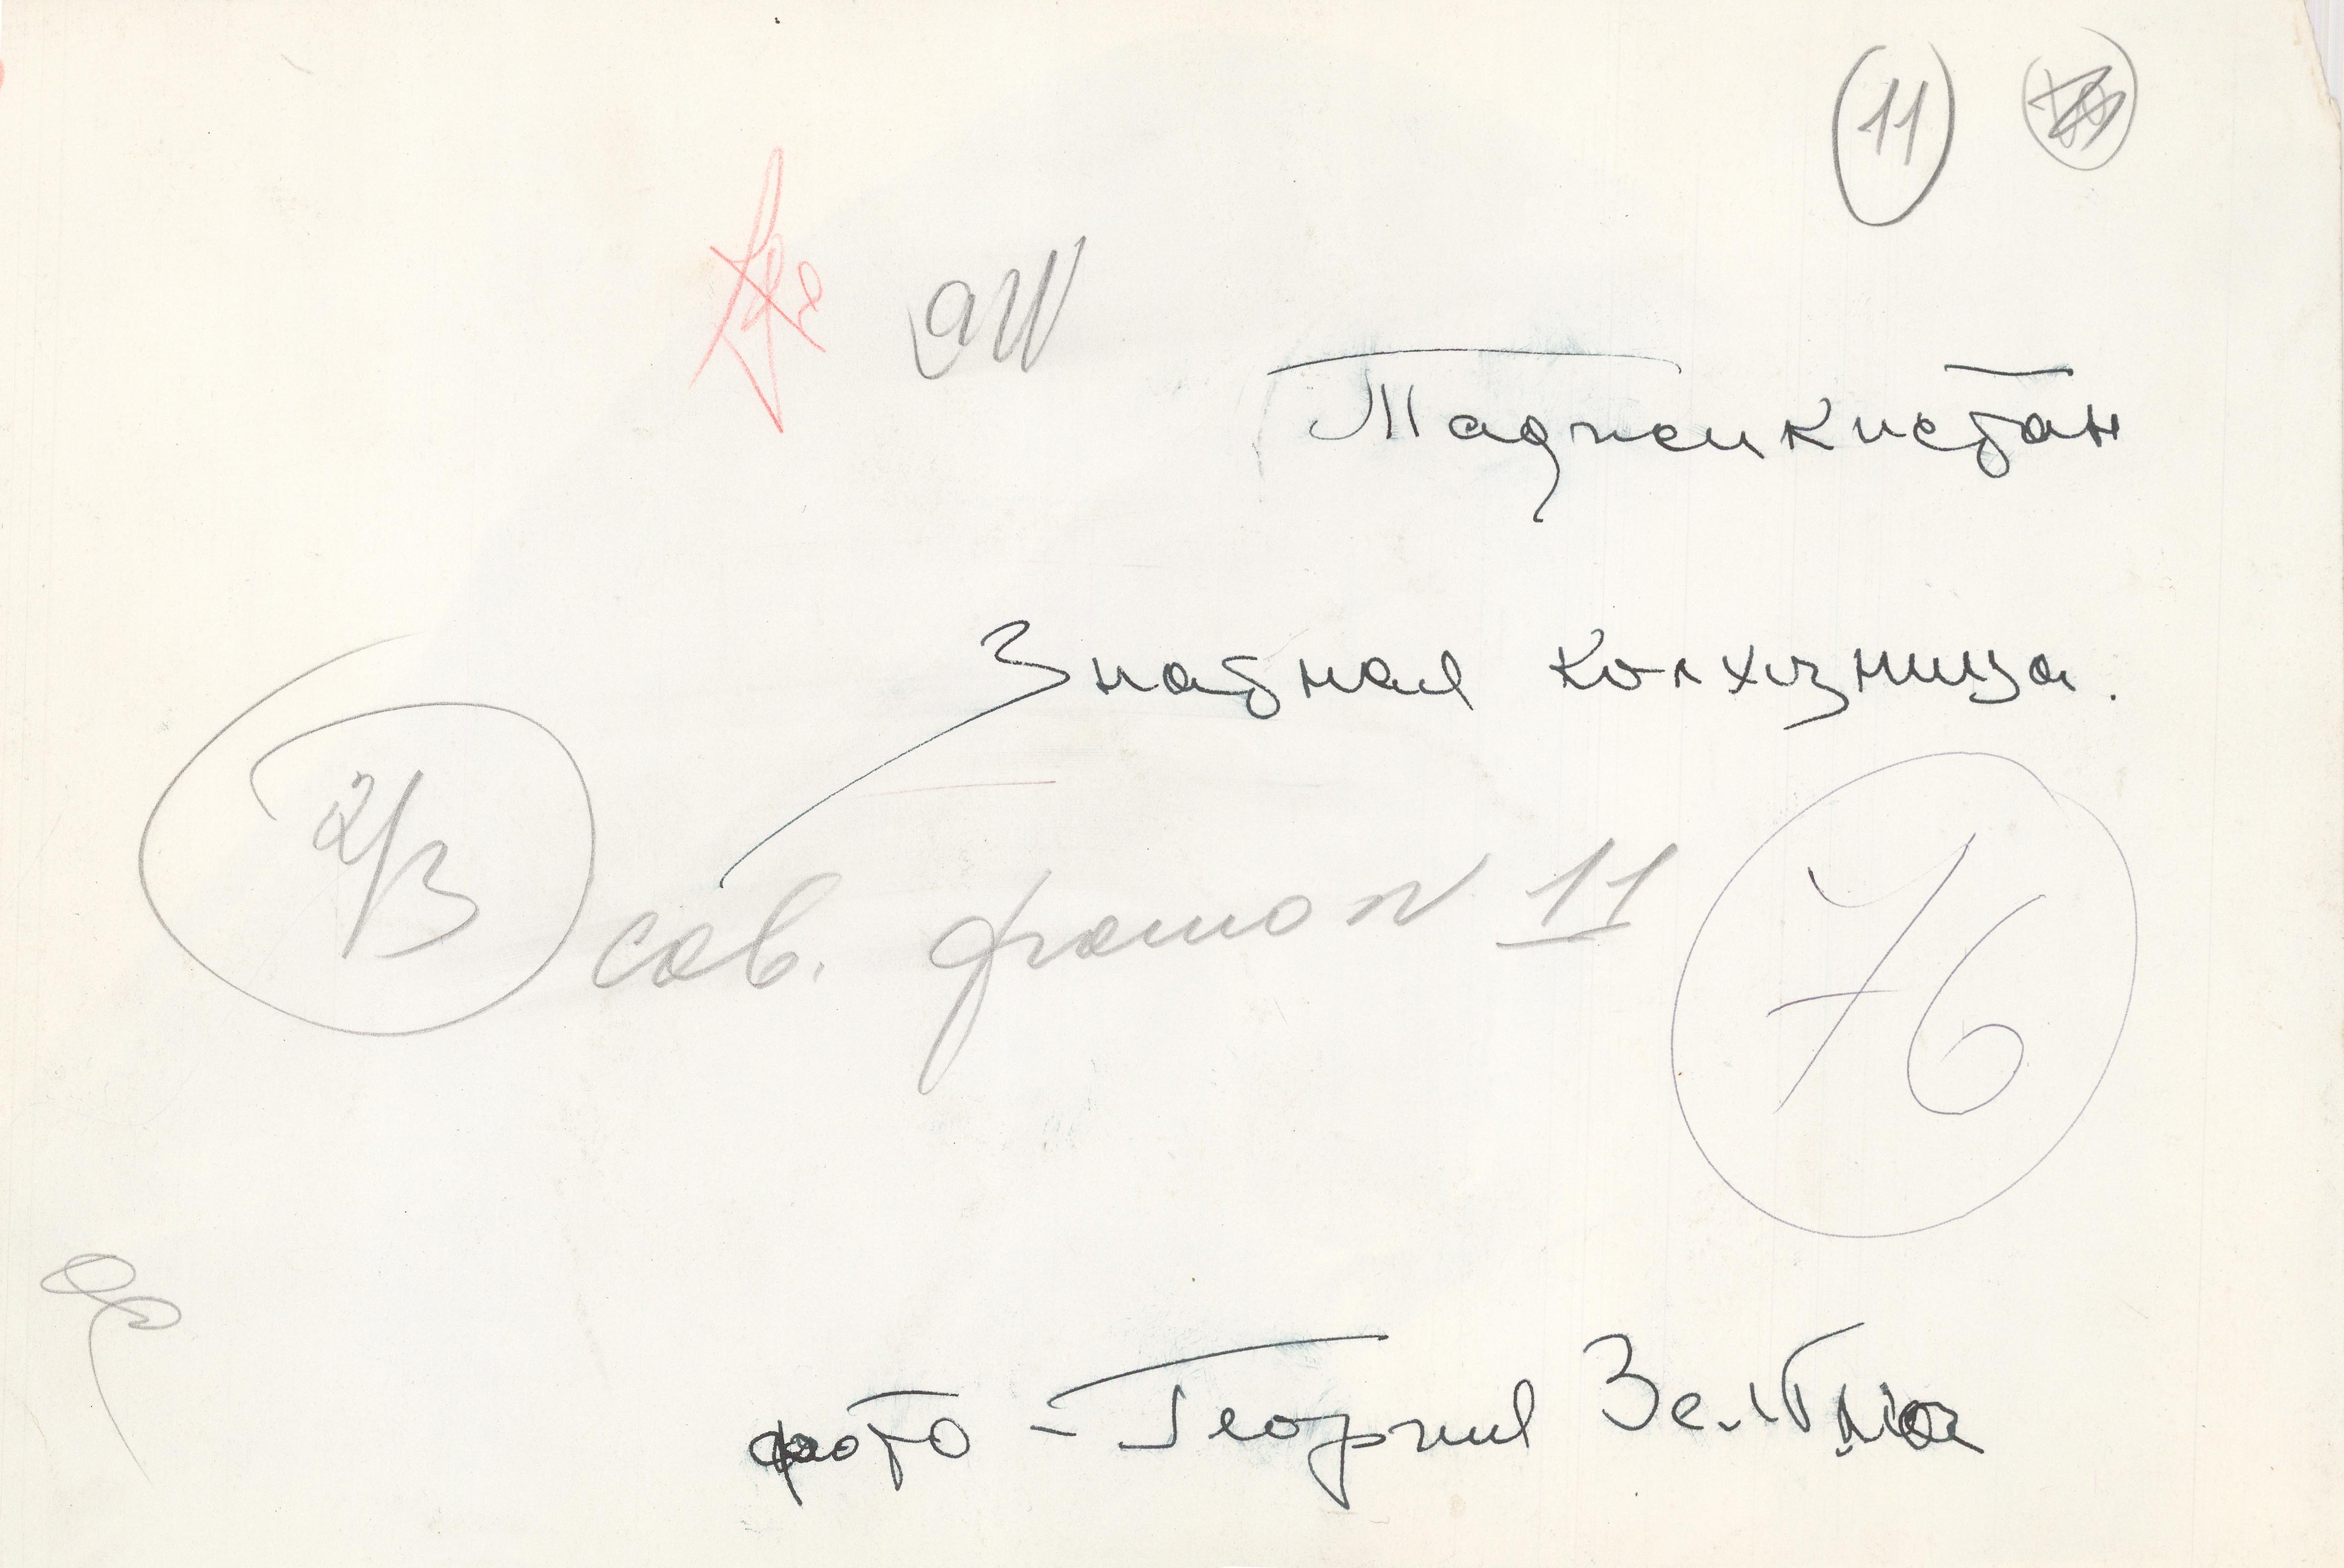 11
Таджикистан
Знатная колхозница.
2/3
сов. фото N 11
76
фото - Георгий Зельма